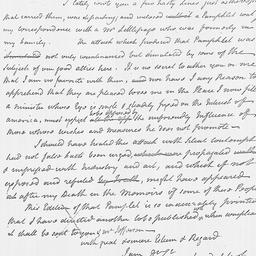 I lately wrote you a few hasty lines just as the
that carried them, was departing; and inclosed a Pamphlet containing
my correspondence with a Mr Littlepage who was formerly in
my family. The attack which produced that Pamphlet was
not only countenanced but stimulated by some of the
subjects of your good allies here. It is no secret to either you or me
that I am no favorite with them; and now have I any Reason to
apprehend that they are pleased to see me in the Place I now fill
a minister whose Eye is fixed & steadily fixed on the Interest of
america, must expect the unfriendly Influence of
those whose wishes and measures he does not promote—
I should have treated this attack with silent contempt
had not falsehoods been urged, propagated
& impressed with Industry and art, and which if not
exposed and refuted might have appeared
after my Death in the Memoirs of some of these People
This Edition of that Pamphlet is so incorrectly printed
that I have directed another to be published, & when compleated
it shall be sent to you & Mr. Jefferson—
with great & sincere Esteem & Regard
I am dr sr